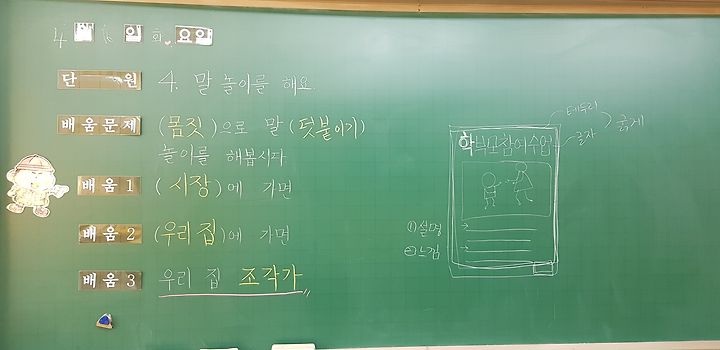 4월 일 화요일
단원 4. 말 놀이를 해요.
배움문제 (몸짓)으로 말 (덧붙이기)
놀이를 해봅시다
배움 1 (시장)에 가면
배움 2 (우리 집)에 가면
배움 3 우리 집 조각가
테두리
글자
굵게
학부모참여수업
①설명
②느낌